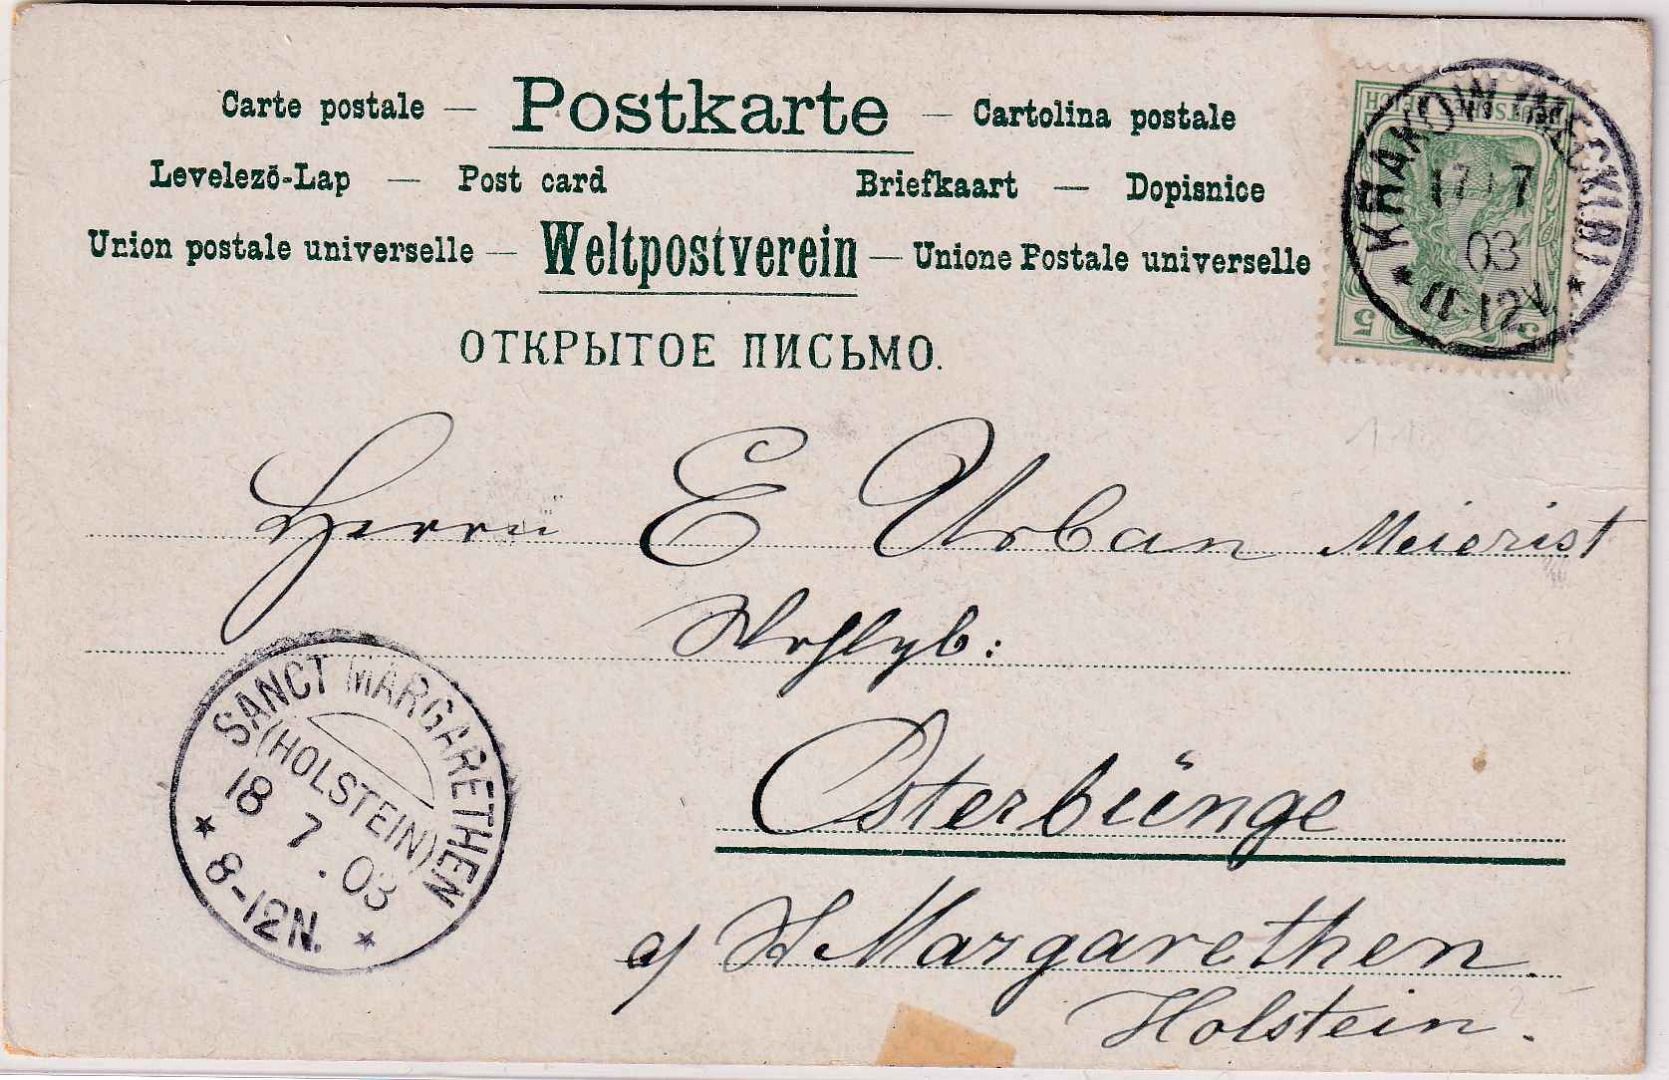 Carte postale — Postkarte — Cartolina postale
Levelező-Lap — Post card Briefkaart — Dopisnice
Union postale universelle — Weltpostverein — Unione Postale universelle
ОТКРЫТОЕ ПИСЬМО.
DEUTSCHES REICH
5 5
KRAKOW (MECKLB.)
17 7
03
11-12V.
Herrn E Urban Meierist
Wohlgb:
Osterbünge
a/ St Margarethen.
Holstein.
SANCT MARGARETHEN
(HOLSTEIN)
18 7.03
8-12N.